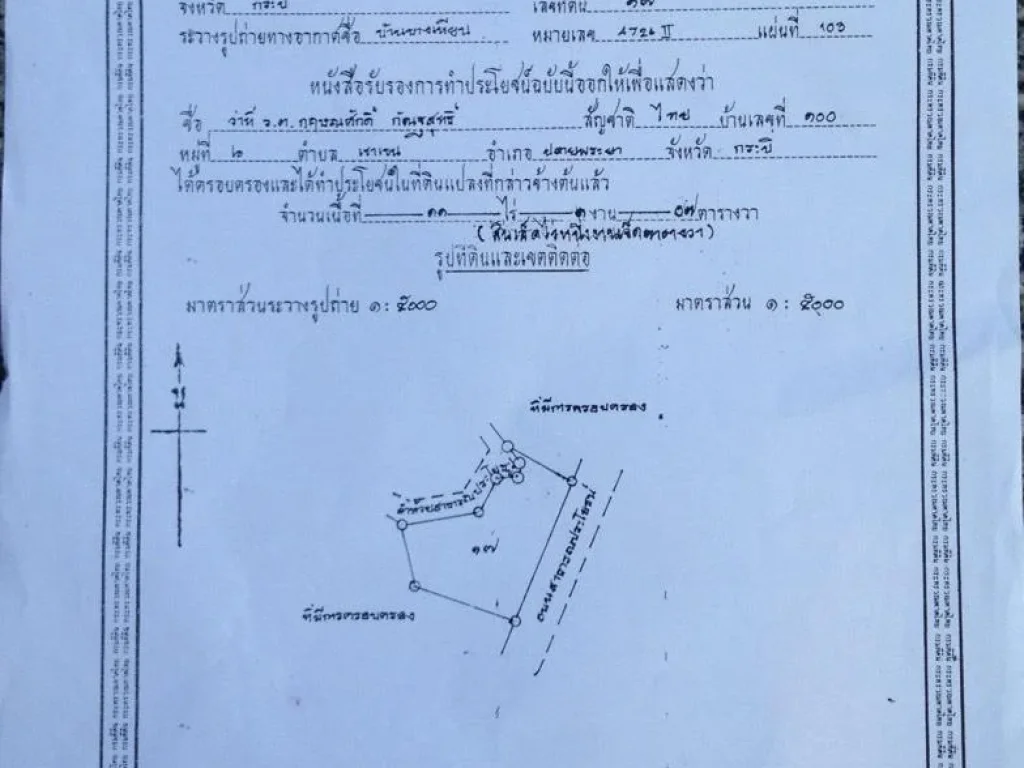 จังหวัด กระบี่ เลขที่ดิน ๑๗
ระวางรูปถ่ายทางอากาศชื่อ บ้านบางเหียน หมายเลข 4726 II แผ่นที่ 103
หนังสือรับรองการทำประโยชน์ฉบับนี้ออกให้เพื่อแสดงว่า
ชื่อ ว่าที่ ร.ต.กฤษณศักดิ์ กัณฐสุทธิ์ สัญชาติ ไทย บ้านเลขที่ ๑๐๐
หมู่ที่ ๒ ตำบล เขาเขน อำเภอ ปลายพระยา จังหวัด กระบี่
ได้ครอบครองและได้ทำประโยชน์ในที่ดินแปลงที่กล่าวข้างต้นแล้ว
จำนวนเนื้อที่ ๑๑ ไร่ ๑ งาน ๐๗ ตารางวา
(สิบเอ็ดไร่หนึ่งงานเจ็ดตารางวา)
รูปที่ดินและเขตติดต่อ
มาตราส่วนระวางรูปถ่าย ๑ : ๕๐๐๐ มาตราส่วน ๑ : ๕๐๐๐
ที่มีการครอบครอง
ลำห้วยสาธารณประโยชน์
๑๗
ถนนสาธารณประโยชน์
ที่มีการครอบครอง